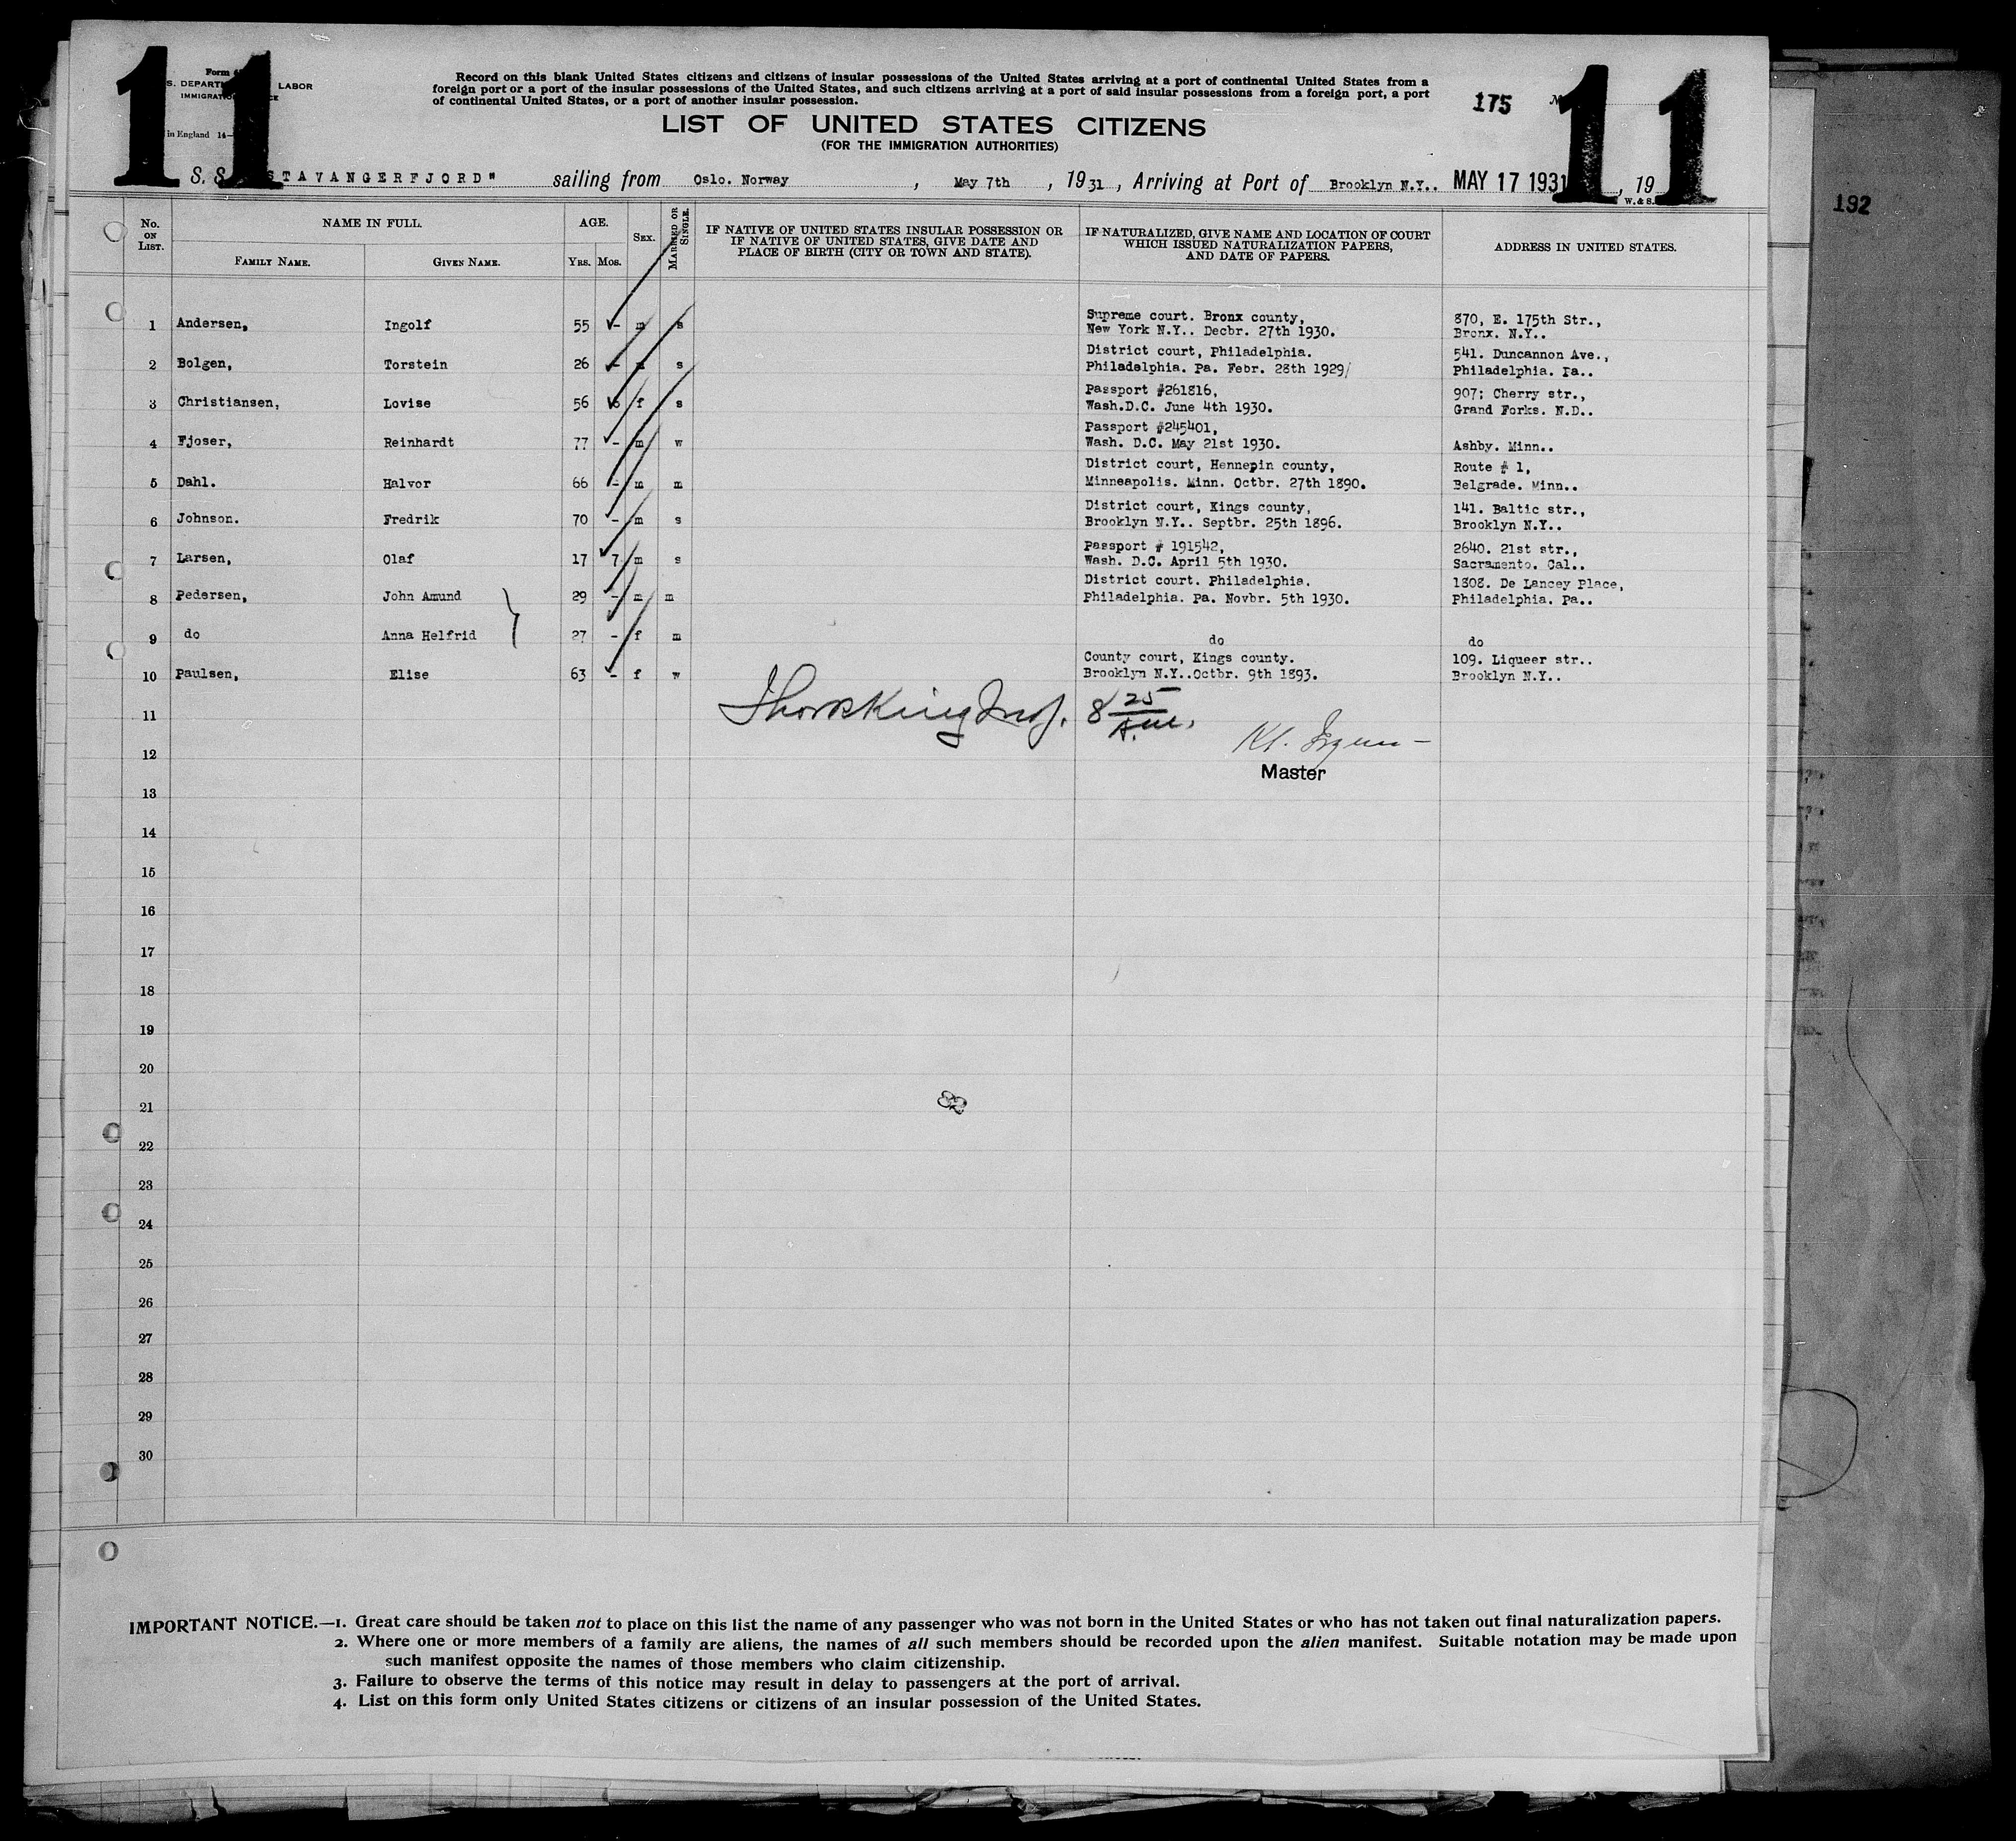 11
11
S. DEPART LABOR
IMMIGRATIO
in England 14—
Record on this blank United States citizens and citizens of insular possessions of the United States arriving at a port of continental United States from a
foreign port or a port of the insular possessions of the United States, and such citizens arriving at a port of said insular possessions from a foreign port, a port
of continental United States, or a port of another insular possession.
175
LIST OF UNITED STATES CITIZENS
(FOR THE IMMIGRATION AUTHORITIES)
S. S. STAVANGERFJORD" sailing from Oslo. Norway , May 7th , 1931, Arriving at Port of Brooklyn N.Y.. MAY 17 1931 , 19
W. & S.
192
No. ON LIST. NAME IN FULL. AGE. SEX. MARRIED OR SINGLE. IF NATIVE OF UNITED STATES INSULAR POSSESSION OR IF NATIVE OF UNITED STATES, GIVE DATE AND PLACE OF BIRTH (CITY OR TOWN AND STATE). IF NATURALIZED, GIVE NAME AND LOCATION OF COURT WHICH ISSUED NATURALIZATION PAPERS, AND DATE OF PAPERS. ADDRESS IN UNITED STATES.
FAMILY NAME. GIVEN NAME. YRS. MOS.
Supreme court. Bronx county, 870, E. 175th Str.,
1 Andersen, Ingolf 55 - m s New York N.Y.. Decbr. 27th 1930. Bronx. N.Y..
District court, Philadelphia. 541. Duncannon Ave.,
2 Bolgen, Torstein 26 - m s Philadelphia. Pa. Febr. 28th 1929/ Philadelphia. Pa..
Passport #261816, 907; Cherry str.,
3 Christiansen, Lovise 56 6 f s Wash.D.C. June 4th 1930. Grand Forks. N.D..
Passport #245401,
4 Fjoser, Reinhardt 77 - m w Wash. D.C. May 21st 1930. Ashby. Minn..
District court, Hennepin county, Route # 1,
5 Dahl. Halvor 66 - m m Minneapolis. Minn. Octbr. 27th 1890. Belgrade. Minn..
District court, Kings county, 141. Baltic str.,
6 Johnson. Fredrik 70 - m s Brooklyn N.Y.. Septbr. 25th 1896. Brooklyn N.Y..
Passport # 191542, 2640. 21st str.,
7 Larsen, Olaf 17 7 m s Wash. D.C. April 5th 1930. Sacramento. Cal..
District court. Philadelphia. 1808. De Lancey Place,
8 Pedersen, John Amund 29 - m m Philadelphia. Pa. Novbr. 5th 1930. Philadelphia. Pa..
9 do Anna Helfrid 27 - f m do do
County court, Kings county. 109. Liqueer str..
10 Paulsen, Elise 63 - f w Brooklyn N.Y..Octbr. 9th 1893. Brooklyn N.Y..
11 8 25 A.M.
12
Master
13
14
15
16
17
18
19
20
21
22
23
24
25
26
27
28
29
30
IMPORTANT NOTICE.—1. Great care should be taken not to place on this list the name of any passenger who was not born in the United States or who has not taken out final naturalization papers.
2. Where one or more members of a family are aliens, the names of all such members should be recorded upon the alien manifest. Suitable notation may be made upon
such manifest opposite the names of those members who claim citizenship.
3. Failure to observe the terms of this notice may result in delay to passengers at the port of arrival.
4. List on this form only United States citizens or citizens of an insular possession of the United States.